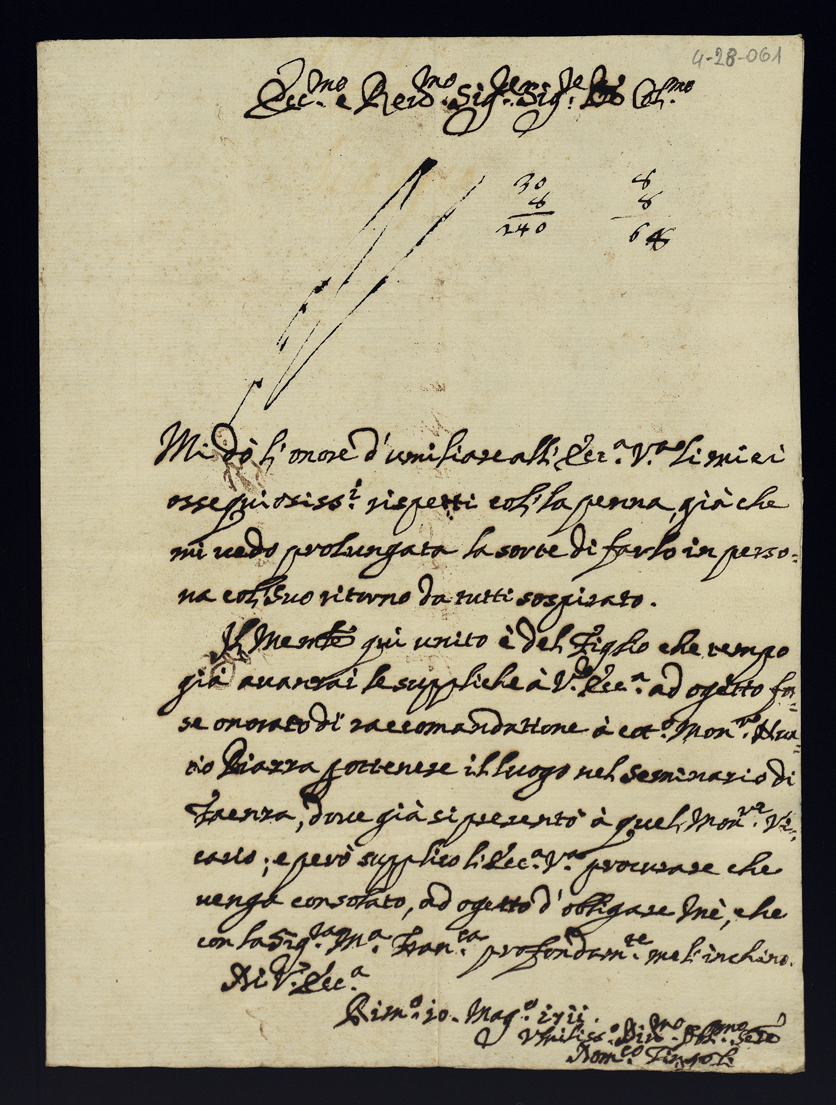 4-28-061
Ecc.mo e Reu.mo Sig.re Sig.re Col.mo
30 8
8 8
240 64
Mi dò l'onore d'umiliare all'Ecc.a V.a li miei
ossequiosiss.i rispetti coll'la penna, già che
mi uedo prolungata la sorte di farlo in perso=
na col suo ritorno da tutti sospirato.
Il qui unito è del Figlio che tempo
già auanzai le suppliche à V.a Ecc.a ad ogetto fos=
se onorato di raccomandatione à cot.o Mon.re
Piazza pottenere il luogo nel Seminario di
Faenza, doue già si presentò à quel Mon.re Vi=
cario; e però supplico l'Ecc.a V.a procurare che
uenga consolato, ad ogetto d'obligare mè, che
con la Sig.ra M.a Fran.ca profondam.te me l'inchino.
Di V. Ecc.a
Rim.o 10. Mag.o 1711.
Vmiliss.o Diu.mo Obl.mo Ser.e
Dom.co Tingoli